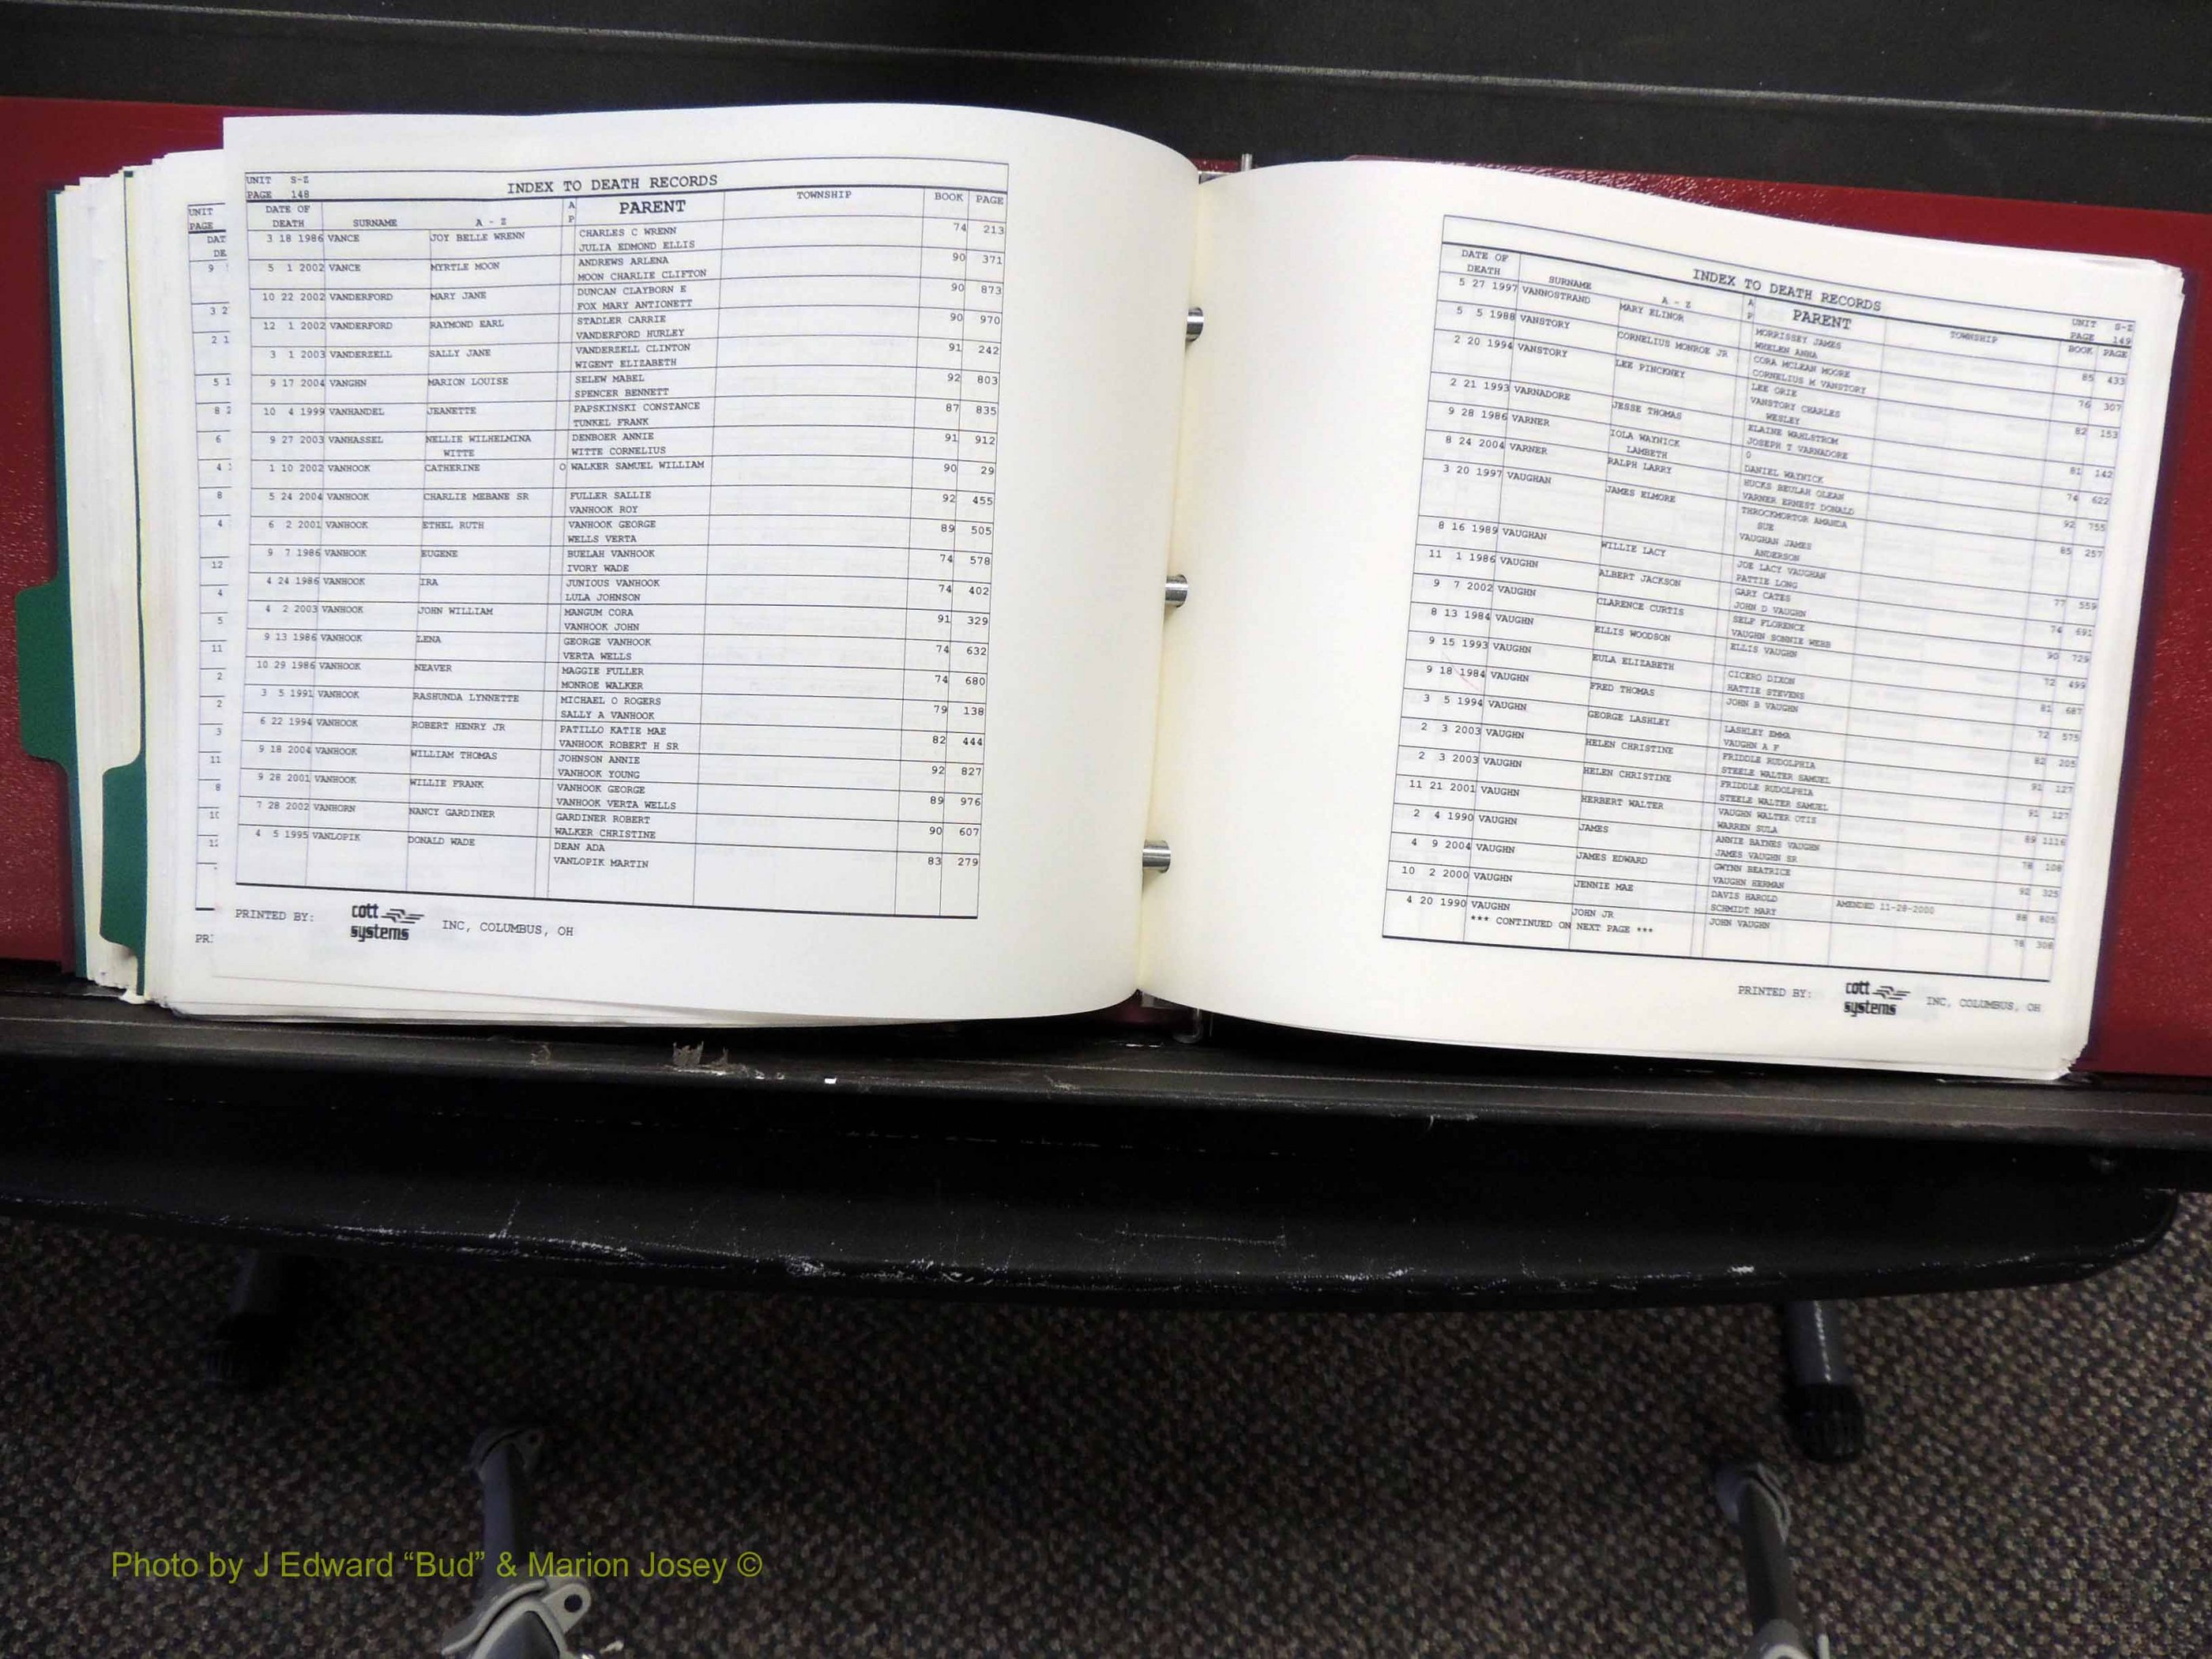 UNIT S-Z
PAGE 148
INDEX TO DEATH RECORDS
DATE OF DEATH SURNAME A - Z A P PARENT TOWNSHIP BOOK PAGE
3 18 1986 VANCE JOY BELLE WRENN CHARLES C WRENN 74 213
JULIA EDMOND ELLIS
5 1 2002 VANCE MYRTLE MOON ANDREWS ARLENA 90 371
MOON CHARLIE CLIFTON
10 22 2002 VANDERFORD MARY JANE DUNCAN CLAYBORN E 90 873
FOX MARY ANTIONETT
12 1 2002 VANDERFORD RAYMOND EARL STADLER CARRIE 90 970
VANDERFORD HURLEY
3 1 2003 VANDERZELL SALLY JANE VANDERZELL CLINTON 91 242
WIGENT ELIZABETH
9 17 2004 VANGHN MARION LOUISE SELEW MABEL 92 803
SPENCER BENNETT
10 4 1999 VANHANDEL JEANETTE PAPSKINSKI CONSTANCE 87 835
TUNKEL FRANK
9 27 2003 VANHASSEL NELLIE WILHELMINA DENBOER ANNIE 91 912
WITTE WITTE CORNELIUS
1 10 2002 VANHOOK CATHERINE O WALKER SAMUEL WILLIAM 90 29
5 24 2004 VANHOOK CHARLIE MEBANE SR FULLER SALLIE 92 455
VANHOOK ROY
6 2 2001 VANHOOK ETHEL RUTH VANHOOK GEORGE 89 505
WELLS VERTA
9 7 1986 VANHOOK EUGENE BUELAH VANHOOK 74 578
IVORY WADE
4 24 1986 VANHOOK IRA JUNIOUS VANHOOK 74 402
LULA JOHNSON
4 2 2003 VANHOOK JOHN WILLIAM MANGUM CORA 91 329
VANHOOK JOHN
9 13 1986 VANHOOK LENA GEORGE VANHOOK 74 632
VERTA WELLS
10 29 1986 VANHOOK NEAVER MAGGIE FULLER 74 680
MONROE WALKER
3 5 1991 VANHOOK RASHUNDA LYNNETTE MICHAEL O ROGERS 79 138
SALLY A VANHOOK
6 22 1994 VANHOOK ROBERT HENRY JR PATILLO KATIE MAE 82 444
VANHOOK ROBERT H SR
9 18 2004 VANHOOK WILLIAM THOMAS JOHNSON ANNIE 92 827
VANHOOK YOUNG
9 28 2001 VANHOOK WILLIE FRANK VANHOOK GEORGE 89 976
VANHOOK VERTA WELLS
7 28 2002 VANHORN NANCY GARDINER GARDINER ROBERT 90 607
WALKER CHRISTINE
4 5 1995 VANLOPIK DONALD WADE DEAN ADA 83 279
VANLOPIK MARTIN
PRINTED BY: cott systems INC, COLUMBUS, OH
INDEX TO DEATH RECORDS
UNIT S-Z
PAGE 149
DATE OF DEATH SURNAME A - Z A P PARENT TOWNSHIP BOOK PAGE
5 27 1997 VANNOSTRAND MARY ELINOR MORRISSEY JAMES 85 433
WHELEN ANNA
5 5 1988 VANSTORY CORNELIUS MONROE JR CORA MCLEAN MOORE 76 307
CORNELIUS M VANSTORY
2 20 1994 VANSTORY LEE PINCKNEY LEE ORIE 82 153
VANSTORY CHARLES
WESLEY
2 21 1993 VARNADORE JESSE THOMAS ELAINE WAHLSTROM 81 142
JOSEPH T VARNADORE
9 28 1986 VARNER IOLA WAYNICK 0 74 622
LAMBETH DANIEL WAYNICK
8 24 2004 VARNER RALPH LARRY HUCKS BEULAH OLEAN 92 755
VARNER ERNEST DONALD
3 20 1997 VAUGHAN JAMES ELMORE THROCKMORTOR AMANDA 85 257
SUE
VAUGHAN JAMES
ANDERSON
8 16 1989 VAUGHAN WILLIE LACY JOE LACY VAUGHAN 77 559
PATTIE LONG
11 1 1986 VAUGHN ALBERT JACKSON GARY CATES 74 691
JOHN D VAUGHN
9 7 2002 VAUGHN CLARENCE CURTIS SELF FLORENCE 90 729
VAUGHN SONNIE WEBB
8 13 1984 VAUGHN ELLIS WOODSON ELLIS VAUGHN 72 499
9 15 1993 VAUGHN EULA ELIZABETH CICERO DIXON 81 687
HATTIE STEVENS
9 18 1984 VAUGHN FRED THOMAS JOHN B VAUGHN 72 575
3 5 1994 VAUGHN GEORGE LASHLEY LASHLEY EMMA 82 205
VAUGHN A F
2 3 2003 VAUGHN HELEN CHRISTINE FRIDDLE RUDOLPHIA 91 127
STEELE WALTER SAMUEL
2 3 2003 VAUGHN HELEN CHRISTINE FRIDDLE RUDOLPHIA 91 127
STEELE WALTER SAMUEL
11 21 2001 VAUGHN HERBERT WALTER VAUGHN WALTER OTIS 89 1116
WARREN SULA
2 4 1990 VAUGHN JAMES ANNIE BAYNES VAUGHN 78 108
JAMES VAUGHN SR
4 9 2004 VAUGHN JAMES EDWARD GWYNN BEATRICE 92 325
VAUGHN HERMAN
10 2 2000 VAUGHN JENNIE MAE DAVIS HAROLD AMENDED 11-28-2000 88 805
SCHMIDT MARY
4 20 1990 VAUGHN JOHN JR JOHN VAUGHN 78 308
*** CONTINUED ON NEXT PAGE ***
PRINTED BY: cott systems INC, COLUMBUS, OH
Photo by J Edward “Bud” & Marion Josey ©